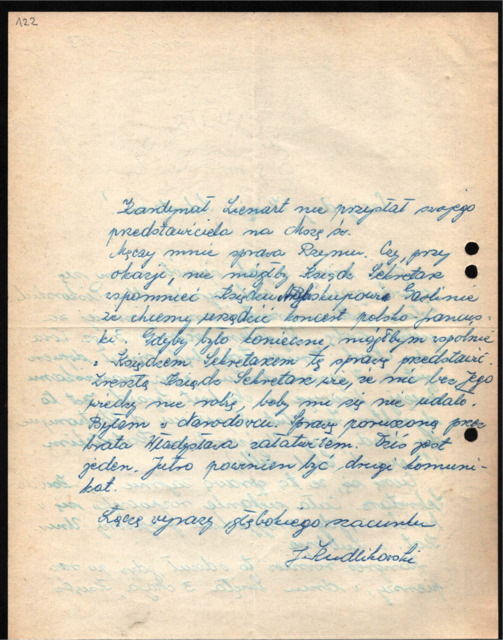 122
Kardynał Lienart nie przysłał swojego
przedstawiciela na Mszę św.
Męczy mnie sprawa Rzymu. Czy, przy
okazji, nie mógłby Ksiądz Sekretarz
wspomnieć Księdzu Arcybiskupowi Gawlinie
że chcemy urządzić koncert polsko francus-
ki. Gdyby było konieczne, mógłbym wspólnie
z Księdzem Sekretarzem tę sprawę przedstawić.
Zresztą Ksiądz Sekretarz wie, że nic bez Jego
wiedzy nie robię, boby mi się nie udało.
Byłem w Narodowcu. Sprawę poruszoną przez
brata Władysława załatwiłem. Treść jest
jeden. Jutro powinien być drugi komuni-
kat.
Łączę wyrazy głębokiego szacunku
J. Kudlikowski